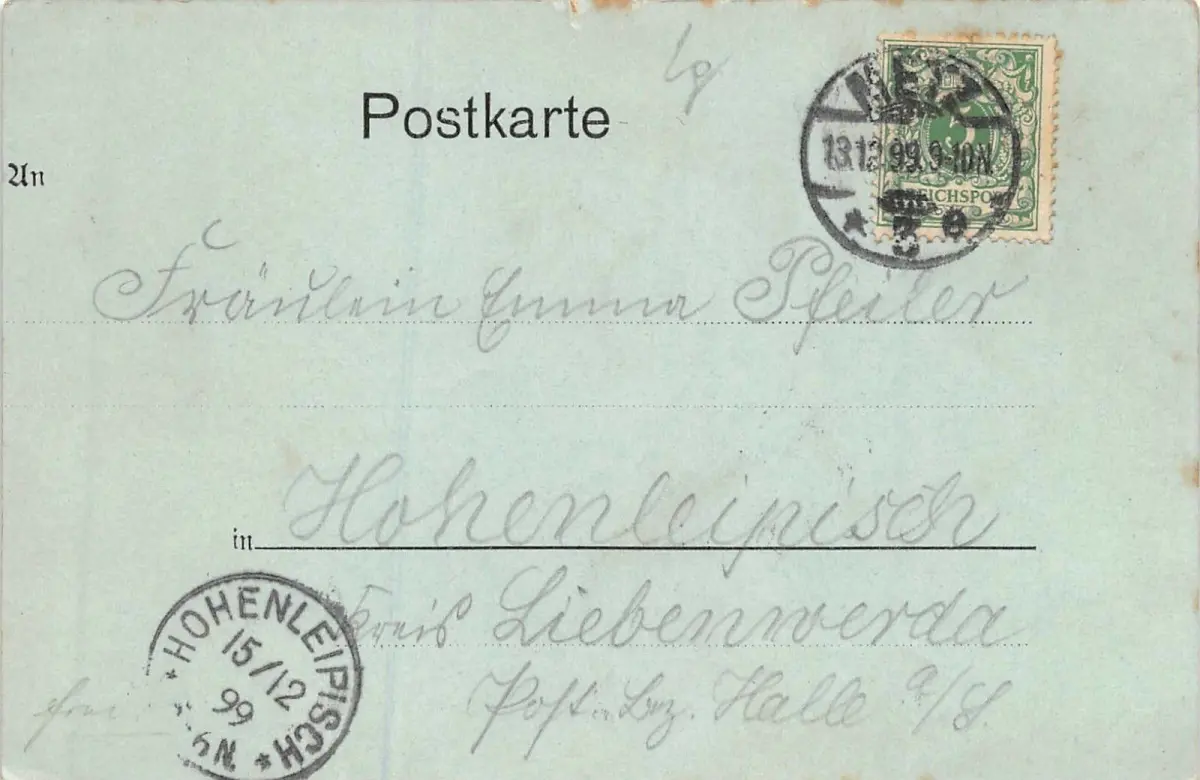 Postkarte
An
METZ
13.12.99.9-10N
* 3 e
REICHSPOST
Fräulein Emma Pfeiler
in Hohenleipisch
Kreis Liebenwerda
Post. Bez. Halle a/S
* HOHENLEIPISCH *
15/12
99
6N